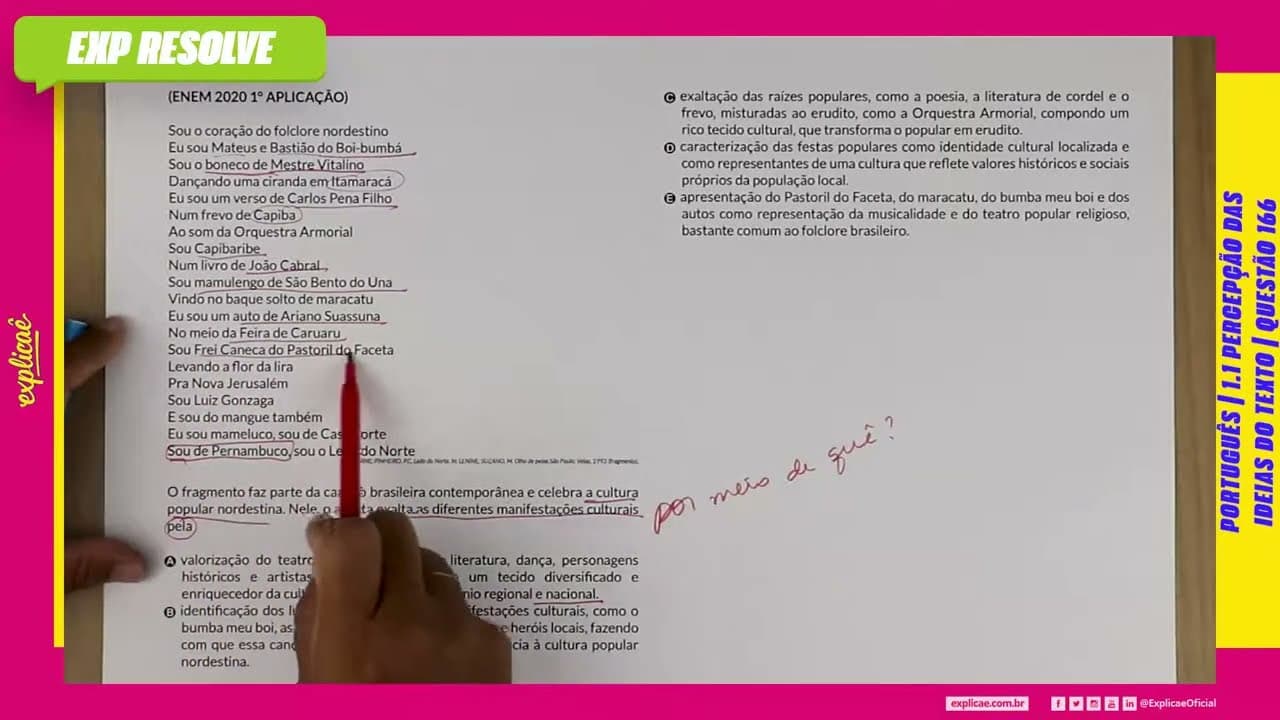 EXP RESOLVE
(ENEM 2020 1º APLICAÇÃO)
Sou o coração do folclore nordestino
Eu sou Mateus e Bastião do Boi-bumbá
Sou o boneco de Mestre Vitalino
Dançando uma ciranda em Itamaracá
Eu sou um verso de Carlos Pena Filho
Num frevo de Capiba
Ao som da Orquestra Armorial
Sou Capibaribe
Num livro de João Cabral
Sou mamulengo de São Bento do Una
Vindo no baque solto de maracatu
Eu sou um auto de Ariano Suassuna
No meio da Feira de Caruaru
Sou Frei Caneca do Pastoril do Faceta
Levando a flor da lira
Pra Nova Jerusalém
Sou Luiz Gonzaga
E sou do mangue também
Eu sou mameluco, sou de Cas orte
Sou de Pernambuco, sou o Le do Norte
PINHEIRO, P.C. Leão do Norte. In: LENINE; SUZANO, M. Olho de peixe. São Paulo: Velas, 1993 (fragmento).
O fragmento faz parte da ca brasileira contemporânea e celebra a cultura
popular nordestina. Nele, o a exalta as diferentes manifestações culturais
pela
A valorização do teatro literatura, dança, personagens
históricos e artistas um tecido diversificado e
enriquecedor da cul nio regional e nacional.
B identificação dos l festações culturais, como o
bumba meu boi, as e heróis locais, fazendo
com que essa can cia à cultura popular
nordestina.
C exaltação das raízes populares, como a poesia, a literatura de cordel e o
frevo, misturadas ao erudito, como a Orquestra Armorial, compondo um
rico tecido cultural, que transforma o popular em erudito.
D caracterização das festas populares como identidade cultural localizada e
como representantes de uma cultura que reflete valores históricos e sociais
próprios da população local.
E apresentação do Pastoril do Faceta, do maracatu, do bumba meu boi e dos
autos como representação da musicalidade e do teatro popular religioso,
bastante comum ao folclore brasileiro.
por meio de quê?
explicaê
PORTUGUÊS | 1.1 PERCEPÇÃO DAS
IDEIAS DO TEXTO | QUESTÃO 166
explicae.com.br
@ExplicaeOficial